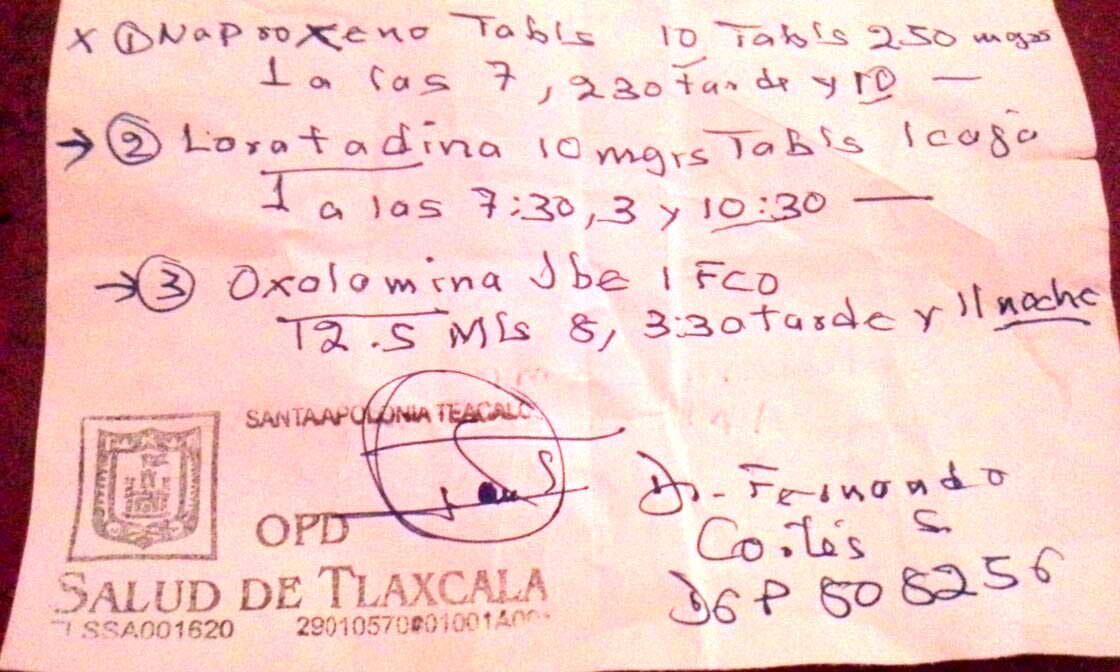 x ① Naproxeno Tabls 10 Tabls 250 mgrs
1 a las 7, 230 tarde y 10 —
→ ② Loratadina 10 mgrs Tabls 1 caja
1 a las 7:30, 3 y 10:30 —
→ ③ Oxolamina Jbe 1 FCO
12.5 Mls 8, 3:30 tarde y 11 noche
SANTA APOLONIA TEACALC
OPD
SALUD DE TLAXCALA
TLSSA001620
Dr. Fernando
Cortés S.
DGP 808256